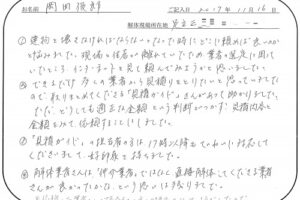 お名前 岡田俊郎 ご記入日 2017年11月16日
解体現場所在地
① 建物を壊さなければならなくなった時にどこに頼めば良いのか
と悩みました。現場は住居から離れていたため業者の選定に困って
いたところ、インターネットで見て頼んでみようかと思いました。
② できるだけ多くの業者から見積りをとりたいと思っていました
ので、取りまとめてくださる「見積ガイド」さんがあって助かりました。
ただ、どうしても適正な金額という判断がつかず、見積内容と
金額をみて依頼することにしました。
③ 「見積ガイド」の担当者の方は17時以降もていねいに対応して
くださいまして、好印象を持ちました。
④ 解体業者さんは、仲介業者ではなく直接解体してくださる業者
さんが良かったかな、という思いは残りました。